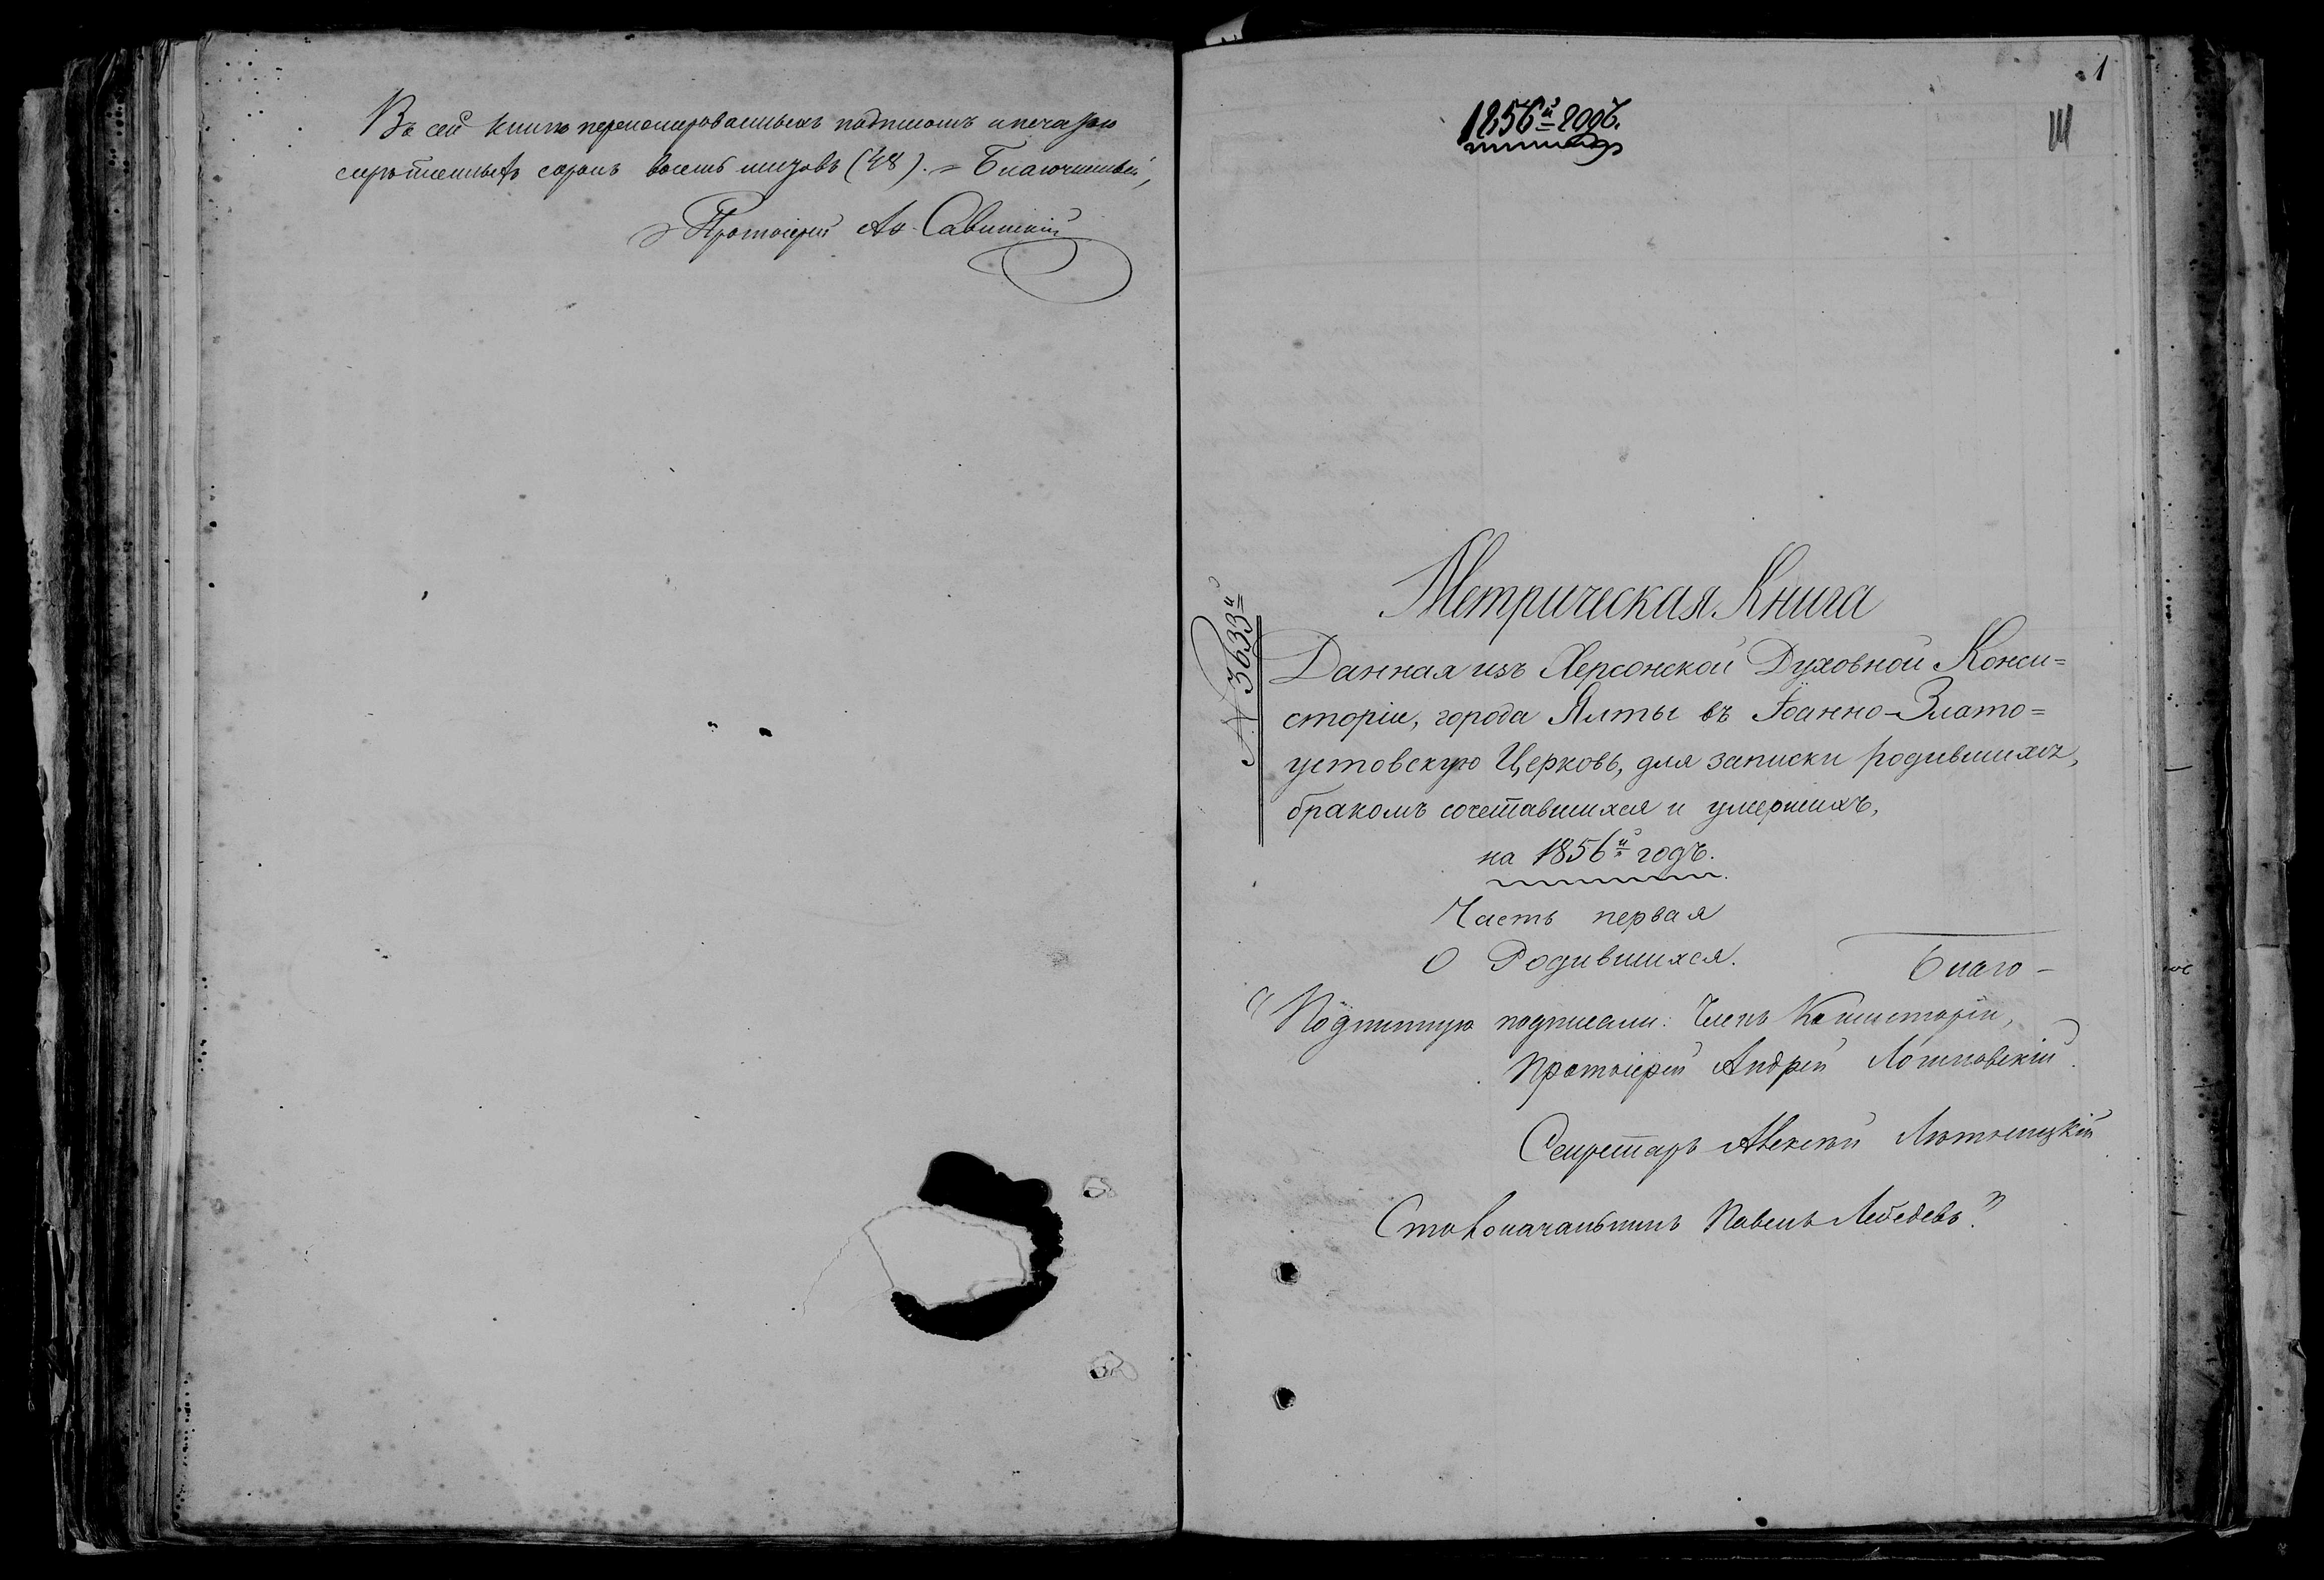 Въ сей книгѣ перенумерованныхъ подписомъ и печатью
скрѣпленныхъ сорокъ восемь листовъ (48). = Благочинный,
Протоіерей Ан. Савинскій
1
III
1856й годъ.
№ 3633й
Метрическая Книга
Данная изъ Херсонской Духовной Конси=
сторіи, города Ялты въ Іоанно-Злато=
устовскую Церковь, для записки родившихся,
бракомъ сочетавшихся и умершихъ,
на 1856й годъ.
Часть первая
О Родившихся.
Благо-
"Подлинную подписали: Членъ Консисторіи,
Протоіерей Андрей
Секретарь Алексѣй
Столоначальникъ Павелъ Лебедевъ."